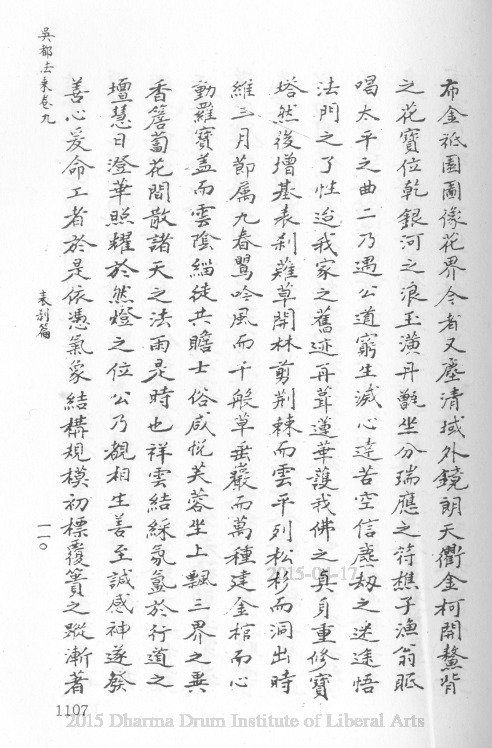 布金祇園圖像花界今者又塵清掝外鏡朗天衢金柯開鼇背
之花寶位乾銀河之浪玉潢丹甑坐分瑞應之符樵子漁翁眂
唱太平之曲二乃遇公道窮生滅心達苦空信惑劫之迷途悟
法門之了性追我家之舊迹再葺蓮華護我佛之真身重修寶
塔然後增基表刹薙草開林剪荆棘而雲平列松杉而洞出時
維三月節屬九春鸎吟風而千般草垂巖而萬種建金棺而心
動羅寶盖而雲陰緇徒共瞻士俗咸悦芙蓉坐上飄三界之異
香簷蔔花間散諸天之法雨是時也祥雲結綵氛氳於行道之
壇慧日澄華照耀於然燈之位公乃覩相生善至諴感神遂發
善心爰命工者於是依憑氣象結構規模初標覆簣之蹤漸著
吳都法乘卷九
表刹篇
一一〇
1107
2015-04-17
2015 Dharma Drum Institute of Liberal Arts